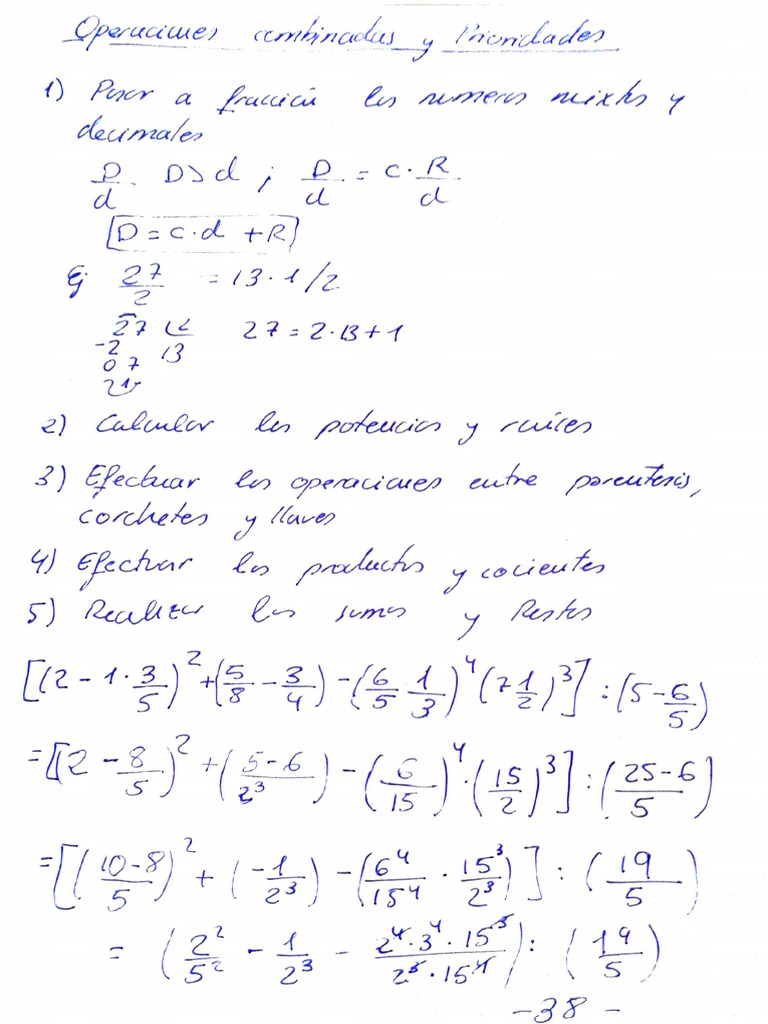 Operaciones combinadas y Prioridades
1) Pasar a fracción los numeros mixtos y
decimales
D/d D>d ; D/d = c · R/d
D = c·d + R
Ej 27/2 = 13 · 1/2
27 2 27 = 2·13 + 1
-2 13
07
21
2) Calcular las potencias y raíces
3) Efectuar las operaciones entre parentesis,
corchetes y llaves
4) Efectuar los productos y cocientes
5) Realizar las sumas y Restas
[(2 - 1·3/5)² + (5/8 - 3/4) - (6/5 · 1/3)⁴ (7 1/2)³] : (5 - 6/5)
= [(2 - 8/5)² + ((5-6)/2³) - (6/15)⁴ · (15/2)³] : ((25-6)/5)
= [((10-8)/5)² + (-1/2³) - (6⁴/15⁴ · 15³/2³)] : (19/5)
= (2²/5² - 1/2³ - 2⁴·3⁴·15³/2³·15⁴) : (19/5)
-38-